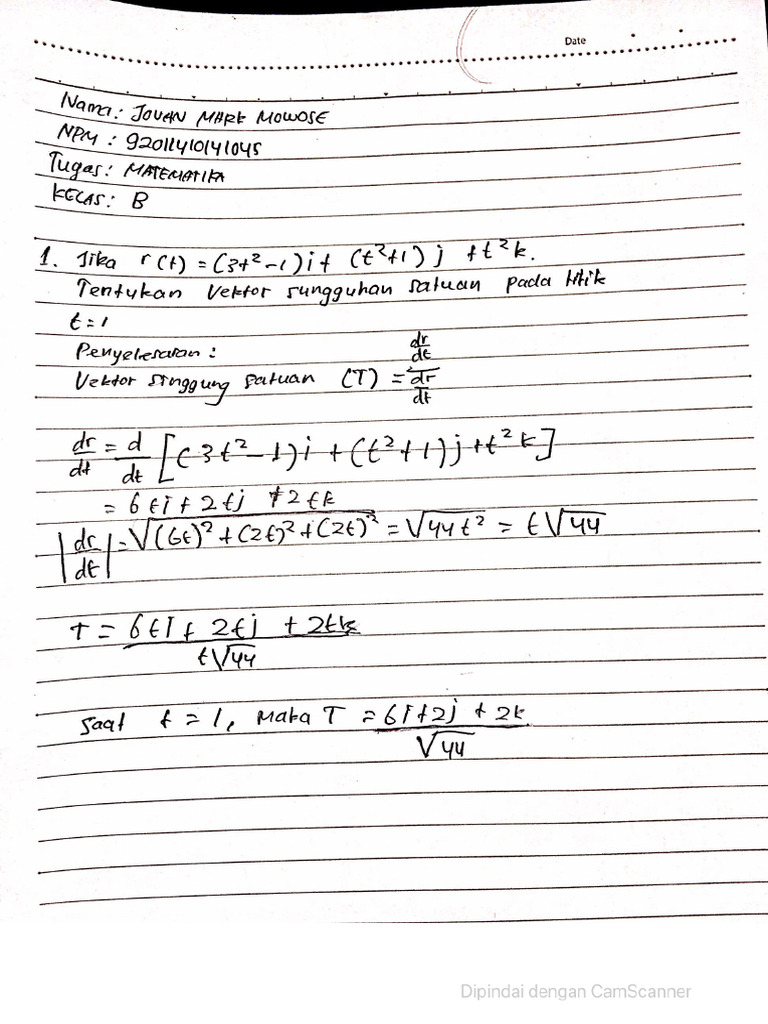 Date
Nama: JOVAN MARK MOWOSE
NPM : 92011410141045
Tugas: MATEMATIKA
KELAS: B
1. Jika r(t) = (3t²-1)i + (t²+1)j + t²k.
Tentukan Vektor sungguhan satuan pada titik
t=1
Penyelesaian:
Vektor singgung satuan (T) = dr/dt / dr/dt
dr/dt = d/dt [(3t²-1)i + (t²+1)j + t²k]
= 6ti + 2tj + 2tk
|dr/dt| = √(6t)² + (2t)² + (2t)² = √44t² = t√44
T = 6ti + 2tj + 2tk / t√44
saat t = 1, maka T = 6i + 2j + 2k / √44
Dipindai dengan CamScanner